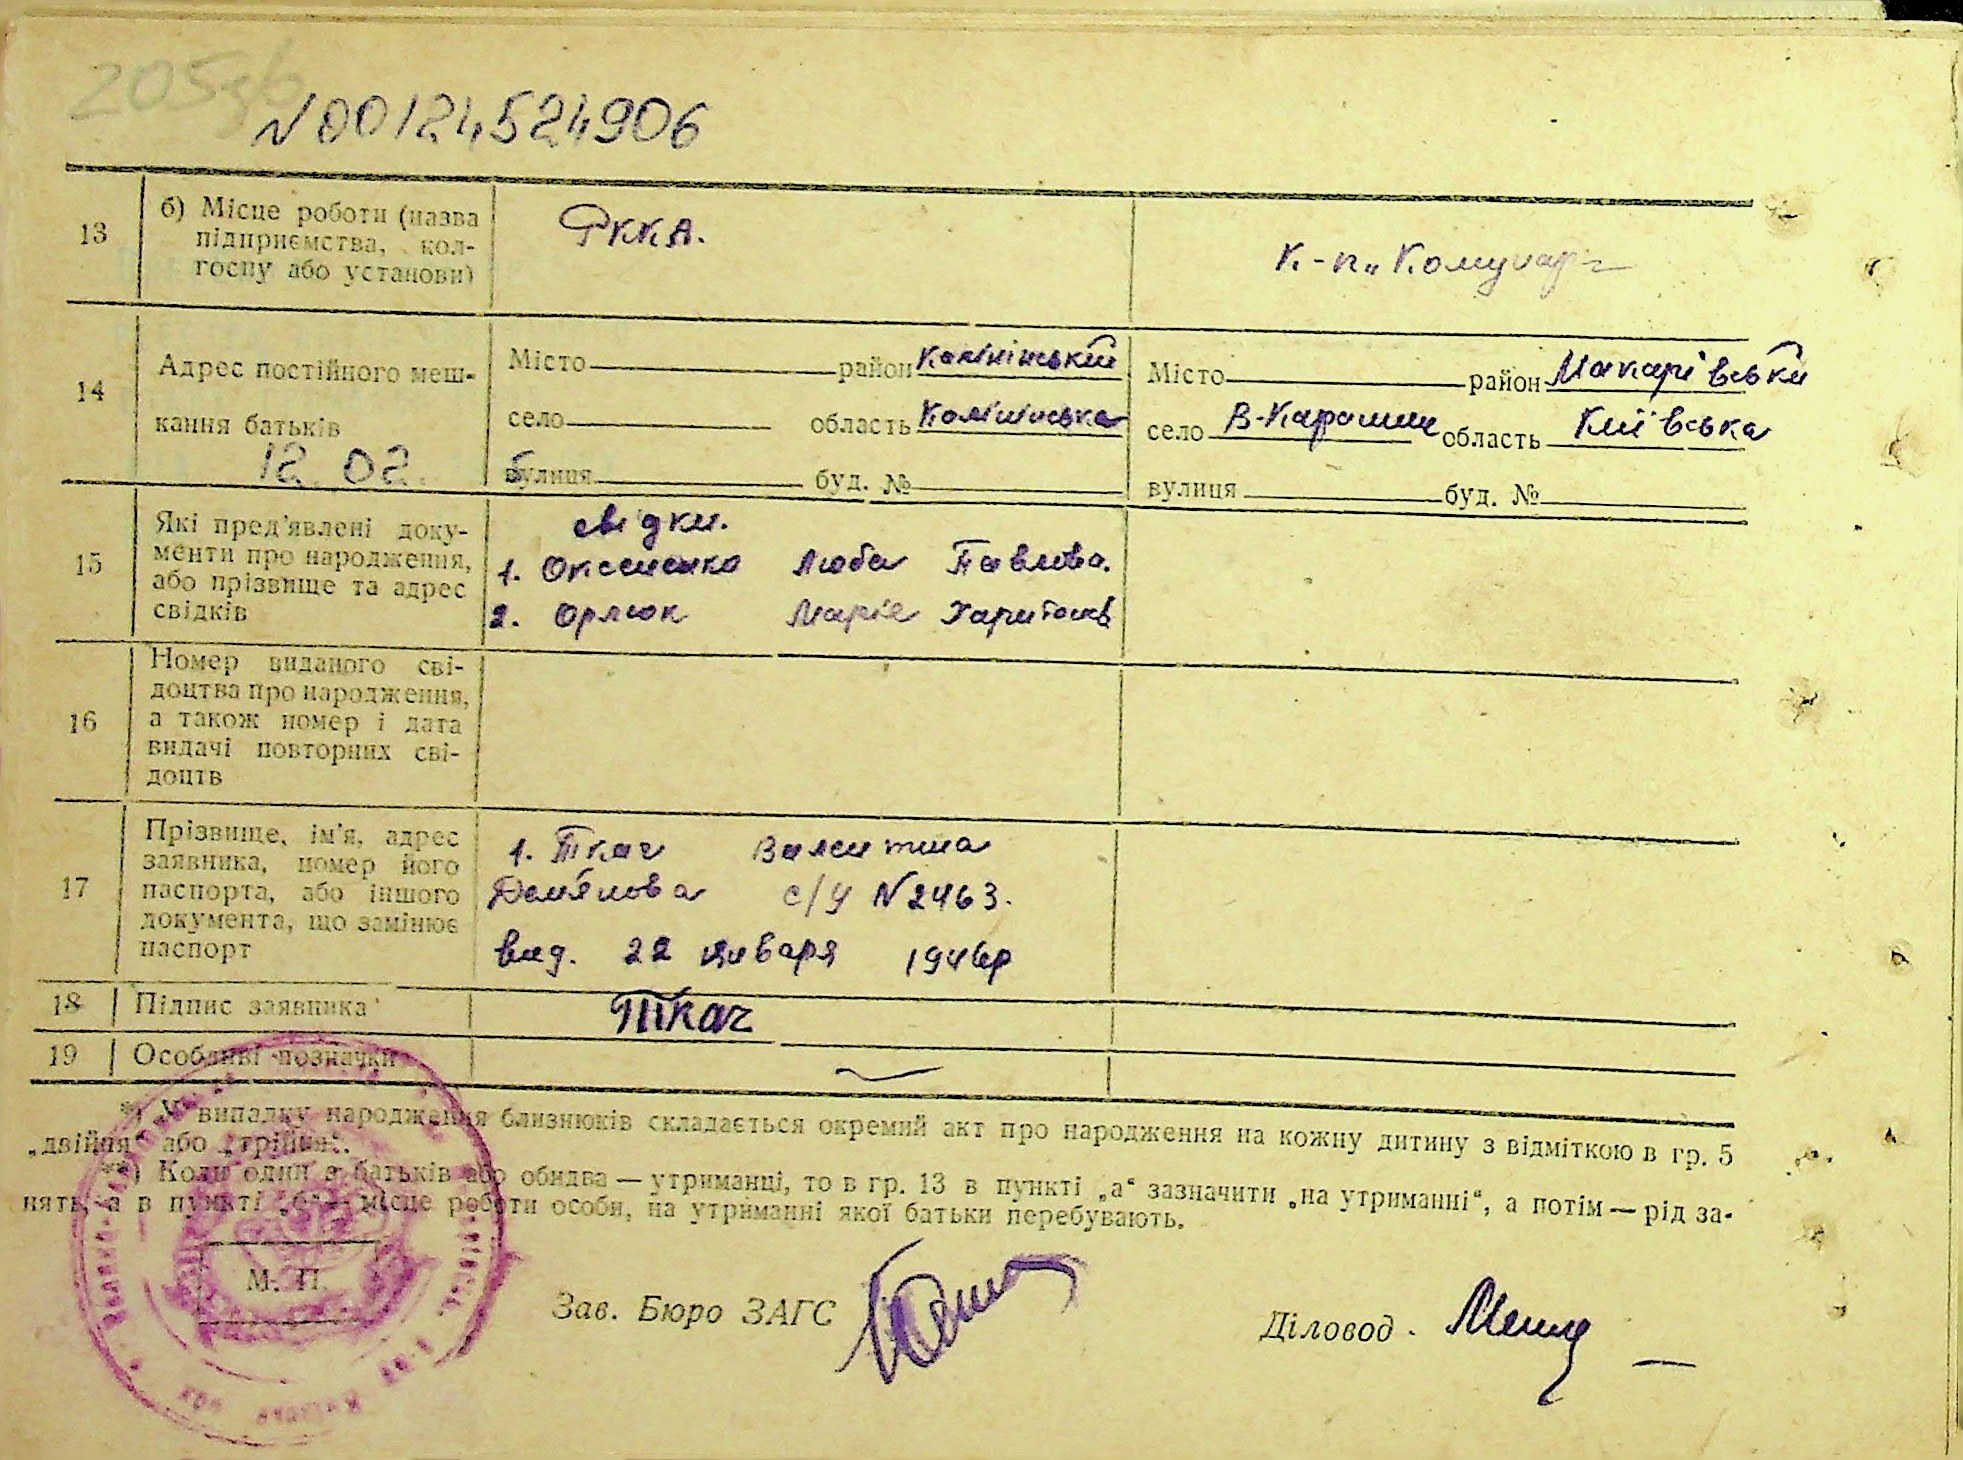 205зв
N 00124524906
13
б) Місце роботи (назва
підприємства, кол-
госпу або установи)
РККА.
К-п „Комунар"
14
Адрес постійного меш-
кання батьків
12.02.
Місто район Калінінський
село область Калінінська
вулиця буд. №
Місто район Макарівськи
село В-Карашин область Київська
вулиця буд. №
15
Які пред'явлені доку-
менти про народження,
або прізвище та адрес
свідків
свідки.
1. Оксененко Люба Павлова.
2. Орлюк Марія Харитонів
16
Номер виданого сві-
доцтва про народження,
а також номер і дата
видачі повторних сві-
доцтв
17
Прізвище, ім'я, адрес
заявника, номер його
паспорта, або іншого
документа, що замінює
паспорт
1. Ткач Валентина
Дем'янова с/у N 2463.
вид. 22 января 1946р
18 Підпис заявника
Ткач
19 Особливі позначки
*) У випадку народження близнюків складається окремий акт про народження на кожну дитину з відміткою в гр. 5
„двійня" або „трійня".
**) Коли один з батьків або обидва — утриманці, то в гр. 13 в пункті „а" зазначити „на утриманні", а потім — рід за-
нять, а в пункті „б" — місце роботи особи, на утриманні якої батьки перебувають.
М. П.
Зав. Бюро ЗАГС
Діловод.